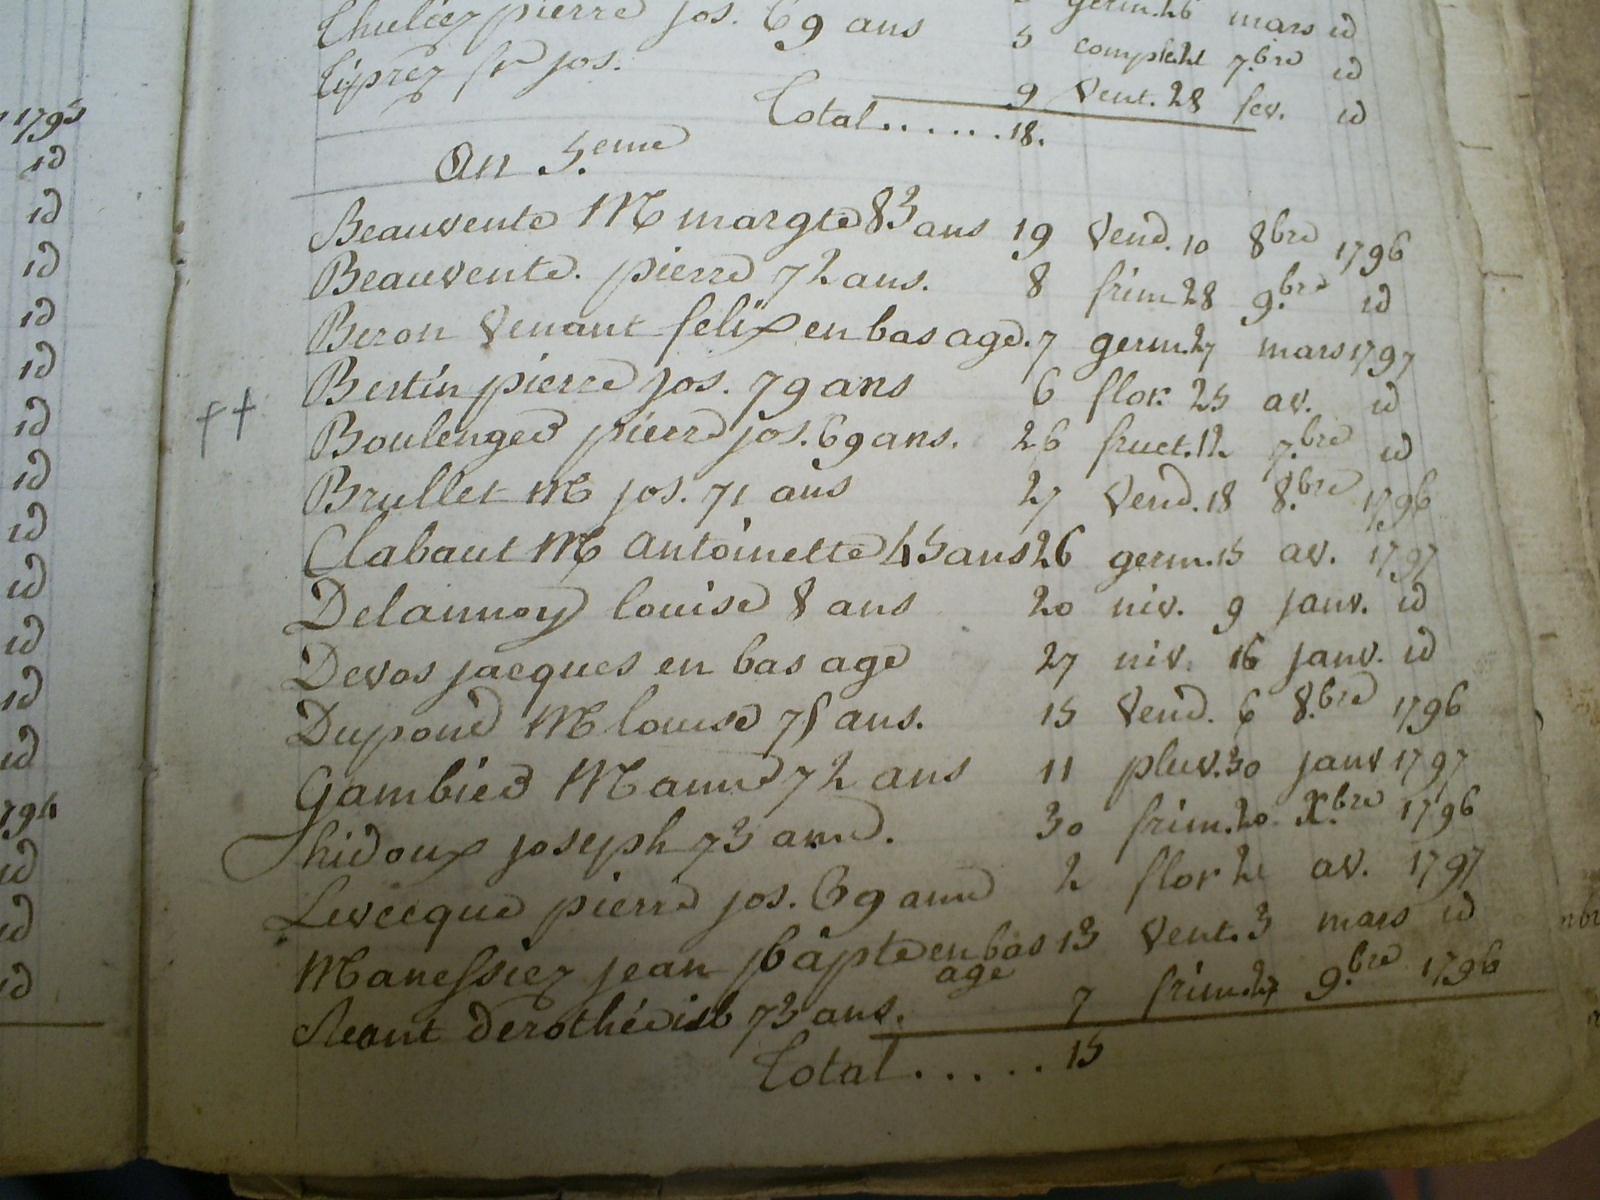 1795
id
id
id
id
id
id
id
id
id
id
id
id
1794
id
id
id
pierre jos. 69 ans 5 germ. 26 mars id
fr jos. 5 complet. 21 7.bre id
9 vent. 28 fev. id
Total ...... 18.
An 5.eme
Beauvente M margte 83 ans 19 vend. 10 8bre 1796
Beauvente. pierre 72 ans. 8 frim 28 9.bre id
Beron venant felix en bas age. 7 germ. 27 mars 1797
Bertin pierre jos. 79 ans 6 flor. 25 av. id
++ Boulenger pierre jos. 69 ans. 26 fruct. 12 7.bre id
Brullet M jos. 71 ans 27 vend. 18 8.bre 1796
Clabaut M antoinette 45 ans 26 germ. 15 av. 1797
Delannoy louise 8 ans 20 niv. 9 janv. id
Devos jacques en bas age 27 niv. 16 janv. id
Dupond M louise ans. 15 vend. 6 8.bre 1796
Gambier M anne 72 ans 11 pluv. 30 janv 1797
joseph 73 ann. 30 frim. 20 X.bre 1796
Levecque pierre jos. 69 ann 2 flor 21 av. 1797
Manessiez jean bapte en bas age 13 vent. 3 mars id
73 ans. 7 frim. 27 9.bre 1796
Total ..... 15